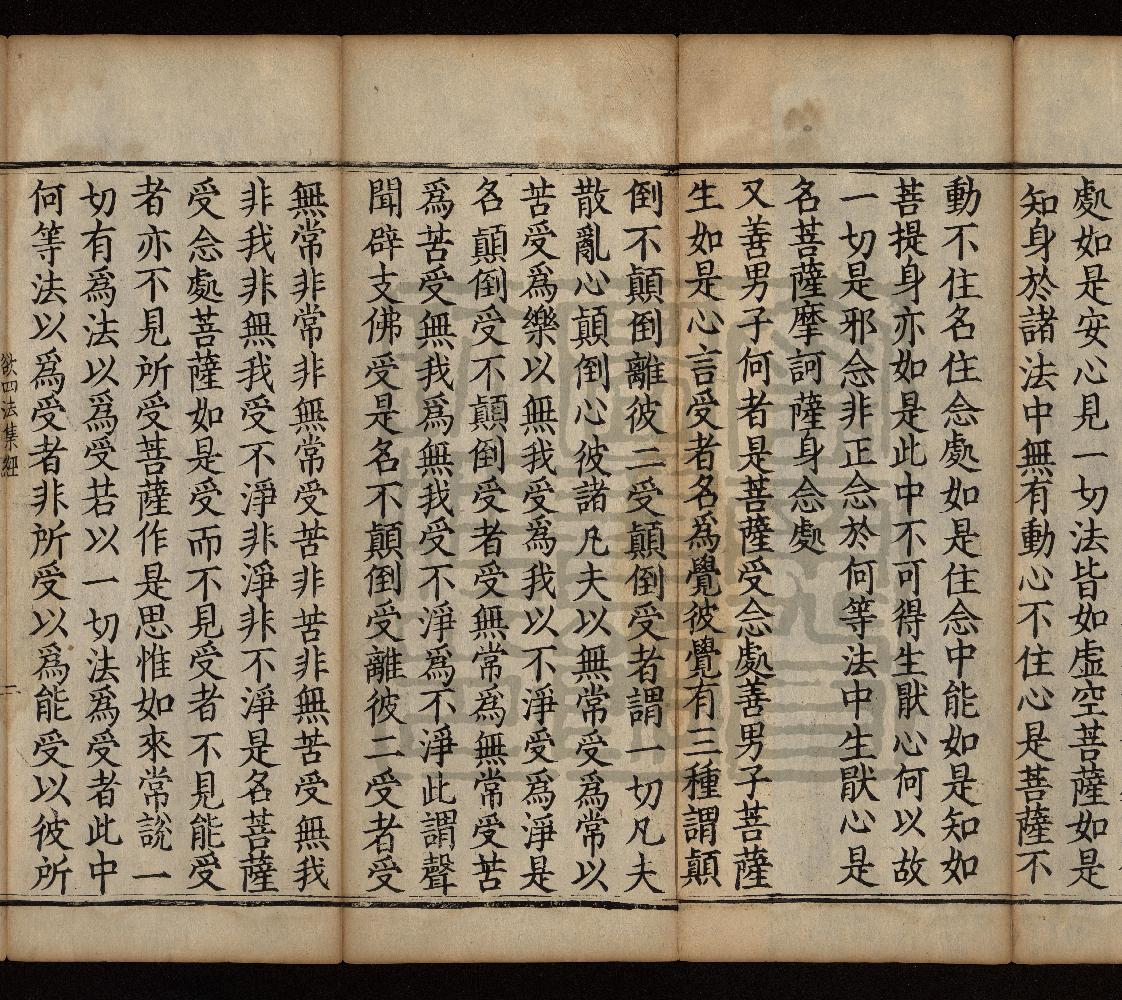 處如是安心見一切法皆如虛空菩薩如是
知身於諸法中無有動心不住心是菩薩不
動不住名住念處如是住念中能如是知如
菩提身亦如是此中不可得生猒心何以故
一切是邪念非正念於何等法中生猒心是
名菩薩摩訶薩身念處
又善男子何者是菩薩受念處善男子菩薩
生如是心言受者名為覺彼覺有三種謂顛
倒不顛倒離彼二受顛倒受者謂一切凡夫
散亂心顛倒心彼諸凡夫以無常受為常以
苦受為樂以無我受為我以不淨受為淨是
名顛倒受不顛倒受者受無常為無常受苦
為苦受無我為無我受不淨為不淨此謂聲
聞辟支佛受是名不顛倒受離彼二受者受
無常非常非無常受苦非苦非無苦受無我
非我非無我受不淨非淨非不淨是名菩薩
受念處菩薩如是受而不見受者不見能受
者亦不見所受菩薩作是思惟如來常說一
切有為法以為受若以一切法為受者此中
何等法以為受者非所受以為能受以彼所
欲四法集經 二